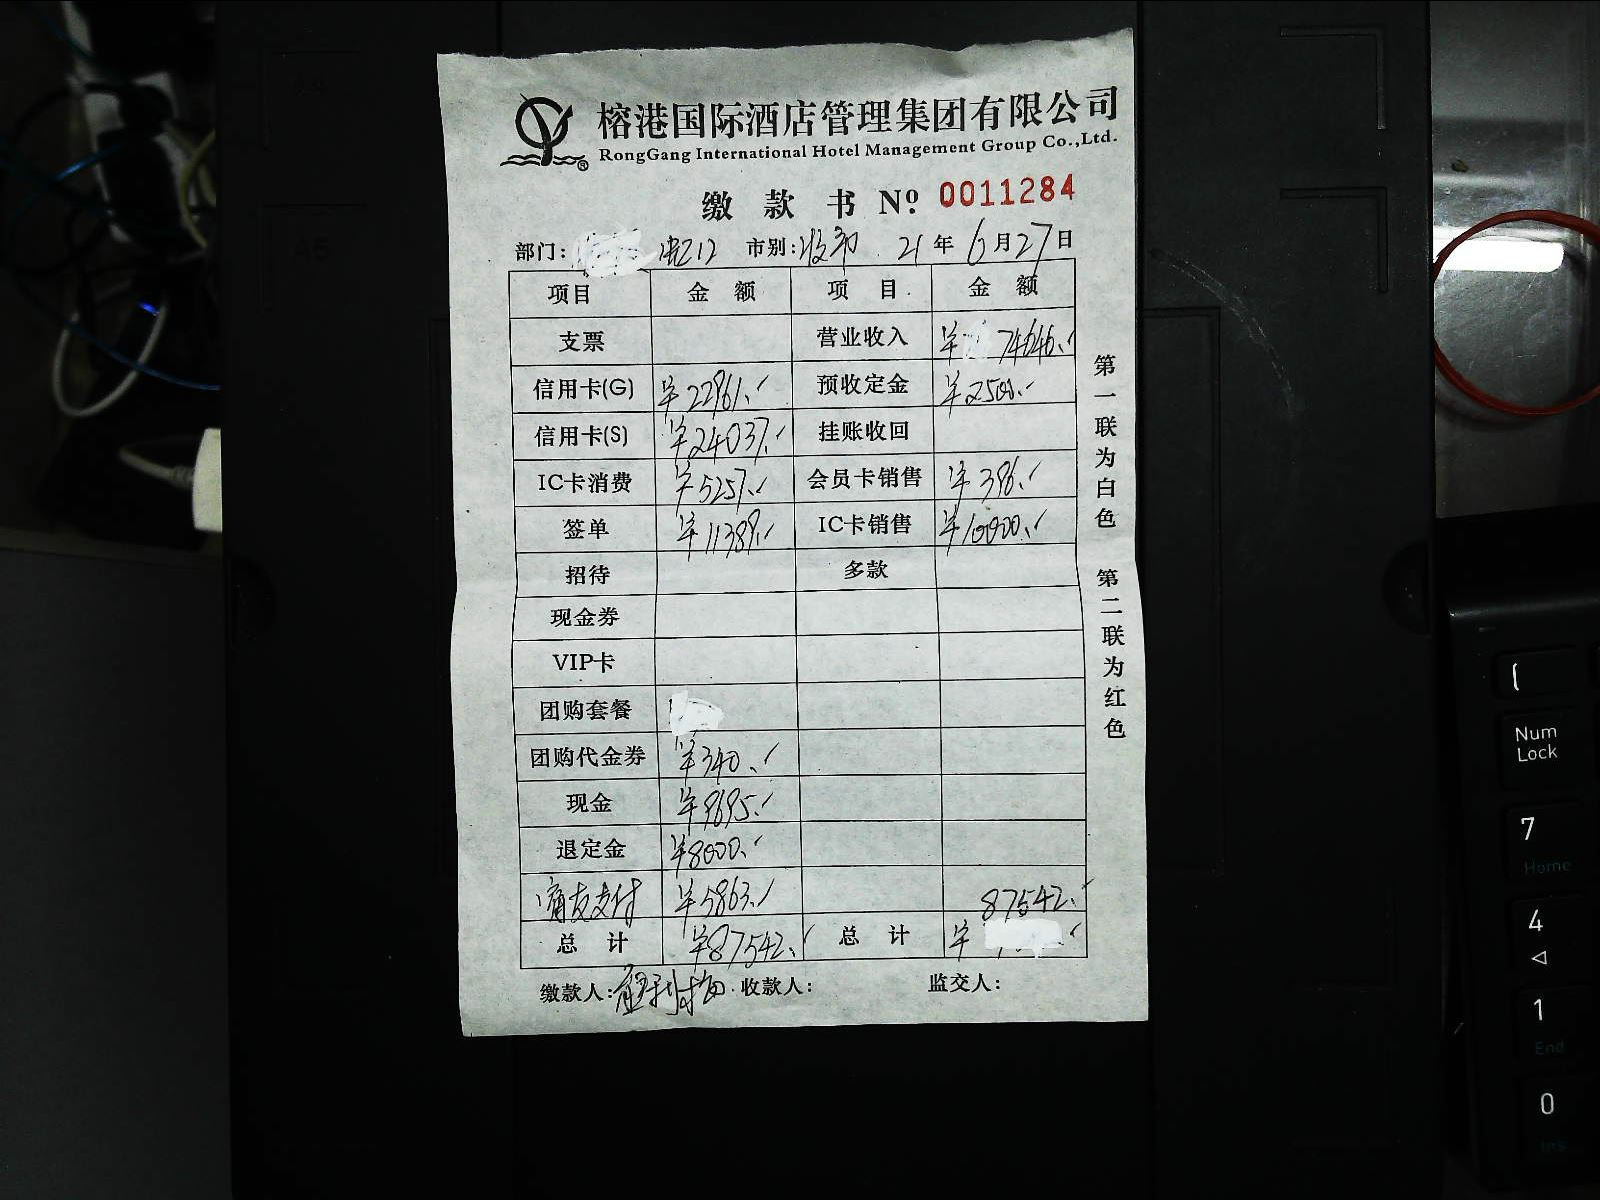 榕港国际酒店管理集团有限公司
RongGang International Hotel Management Group Co.,Ltd.
缴款书 Nº. 0011284
部门: 蛇口 市别: 收市 21年6月27日
项目 金额 项目 金额
支票 营业收入 ¥74646.
信用卡(G) ¥22961. 预收定金 ¥2500.
信用卡(S) ¥24037. 挂账收回
IC卡消费 ¥5257. 会员卡销售 ¥396.
签单 ¥11389. IC卡销售 ¥10000.
招待 多款
现金券
VIP卡
团购套餐
团购代金券 ¥340.
现金 ¥9695.
退定金 ¥8000.
支付 ¥5863. 87542.
总计 ¥87542. 总计 ¥
缴款人: 收款人: 监交人:
第一联为白色 第二联为红色
A5
Num
Lock
7
Home
4
1
End
0
Ins